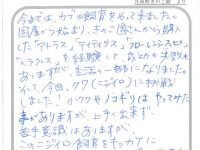 今までは、カブの飼育をやって来ました。
国産から始まり、きゃこ園さんから購入
した"アトラス" "ティティウス" "フローレンシスヒメ"
"ヘラクレス"を経験して、成功や失敗も
ありますが、生活の一部になりました。
そして、今回、クワ(ニジイロ)に挑戦
しました! 小クワやノコギリはやってみた
事がありますが、上手く出来ず、
苦手意識はありますが、
このニジイロ飼育をキッカケに